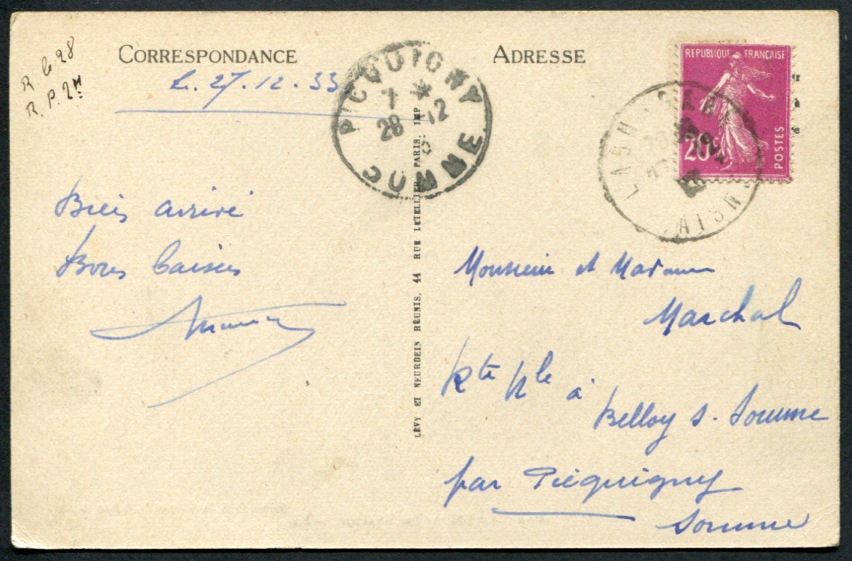 R G 28
R. P. 2M
CORRESPONDANCE
L. 27.12.33
Bien arrivé
Bons baisers
ADRESSE
Monsieur et Madame
Marchal
Rte Nle à
Belloy s. Somme
par Picquigny
Somme
PICQUIGNY
7 *
28 -12
SOMME
LÉVY ET NEURDEIN RÉUNIS, 44 RUE LETELLIER, PARIS. IMP.
REPUBLIQUE FRANÇAISE
20c
POSTES
LAON
AISNE